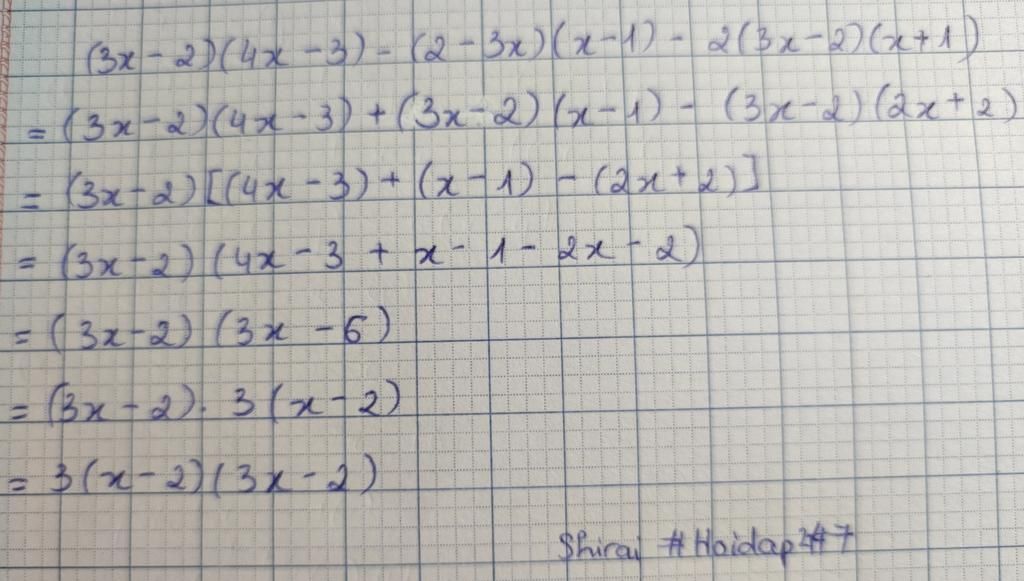 (3x - 2)(4x - 3) - (2 - 3x)(x - 1) - 2(3x - 2)(x + 1)
= (3x - 2)(4x - 3) + (3x - 2)(x - 1) - (3x - 2)(2x + 2)
= (3x - 2)[(4x - 3) + (x - 1) - (2x + 2)]
= (3x - 2)(4x - 3 + x - 1 - 2x - 2)
= (3x - 2)(3x - 6)
= (3x - 2). 3(x - 2)
= 3(x - 2)(3x - 2)
#Hoidap247